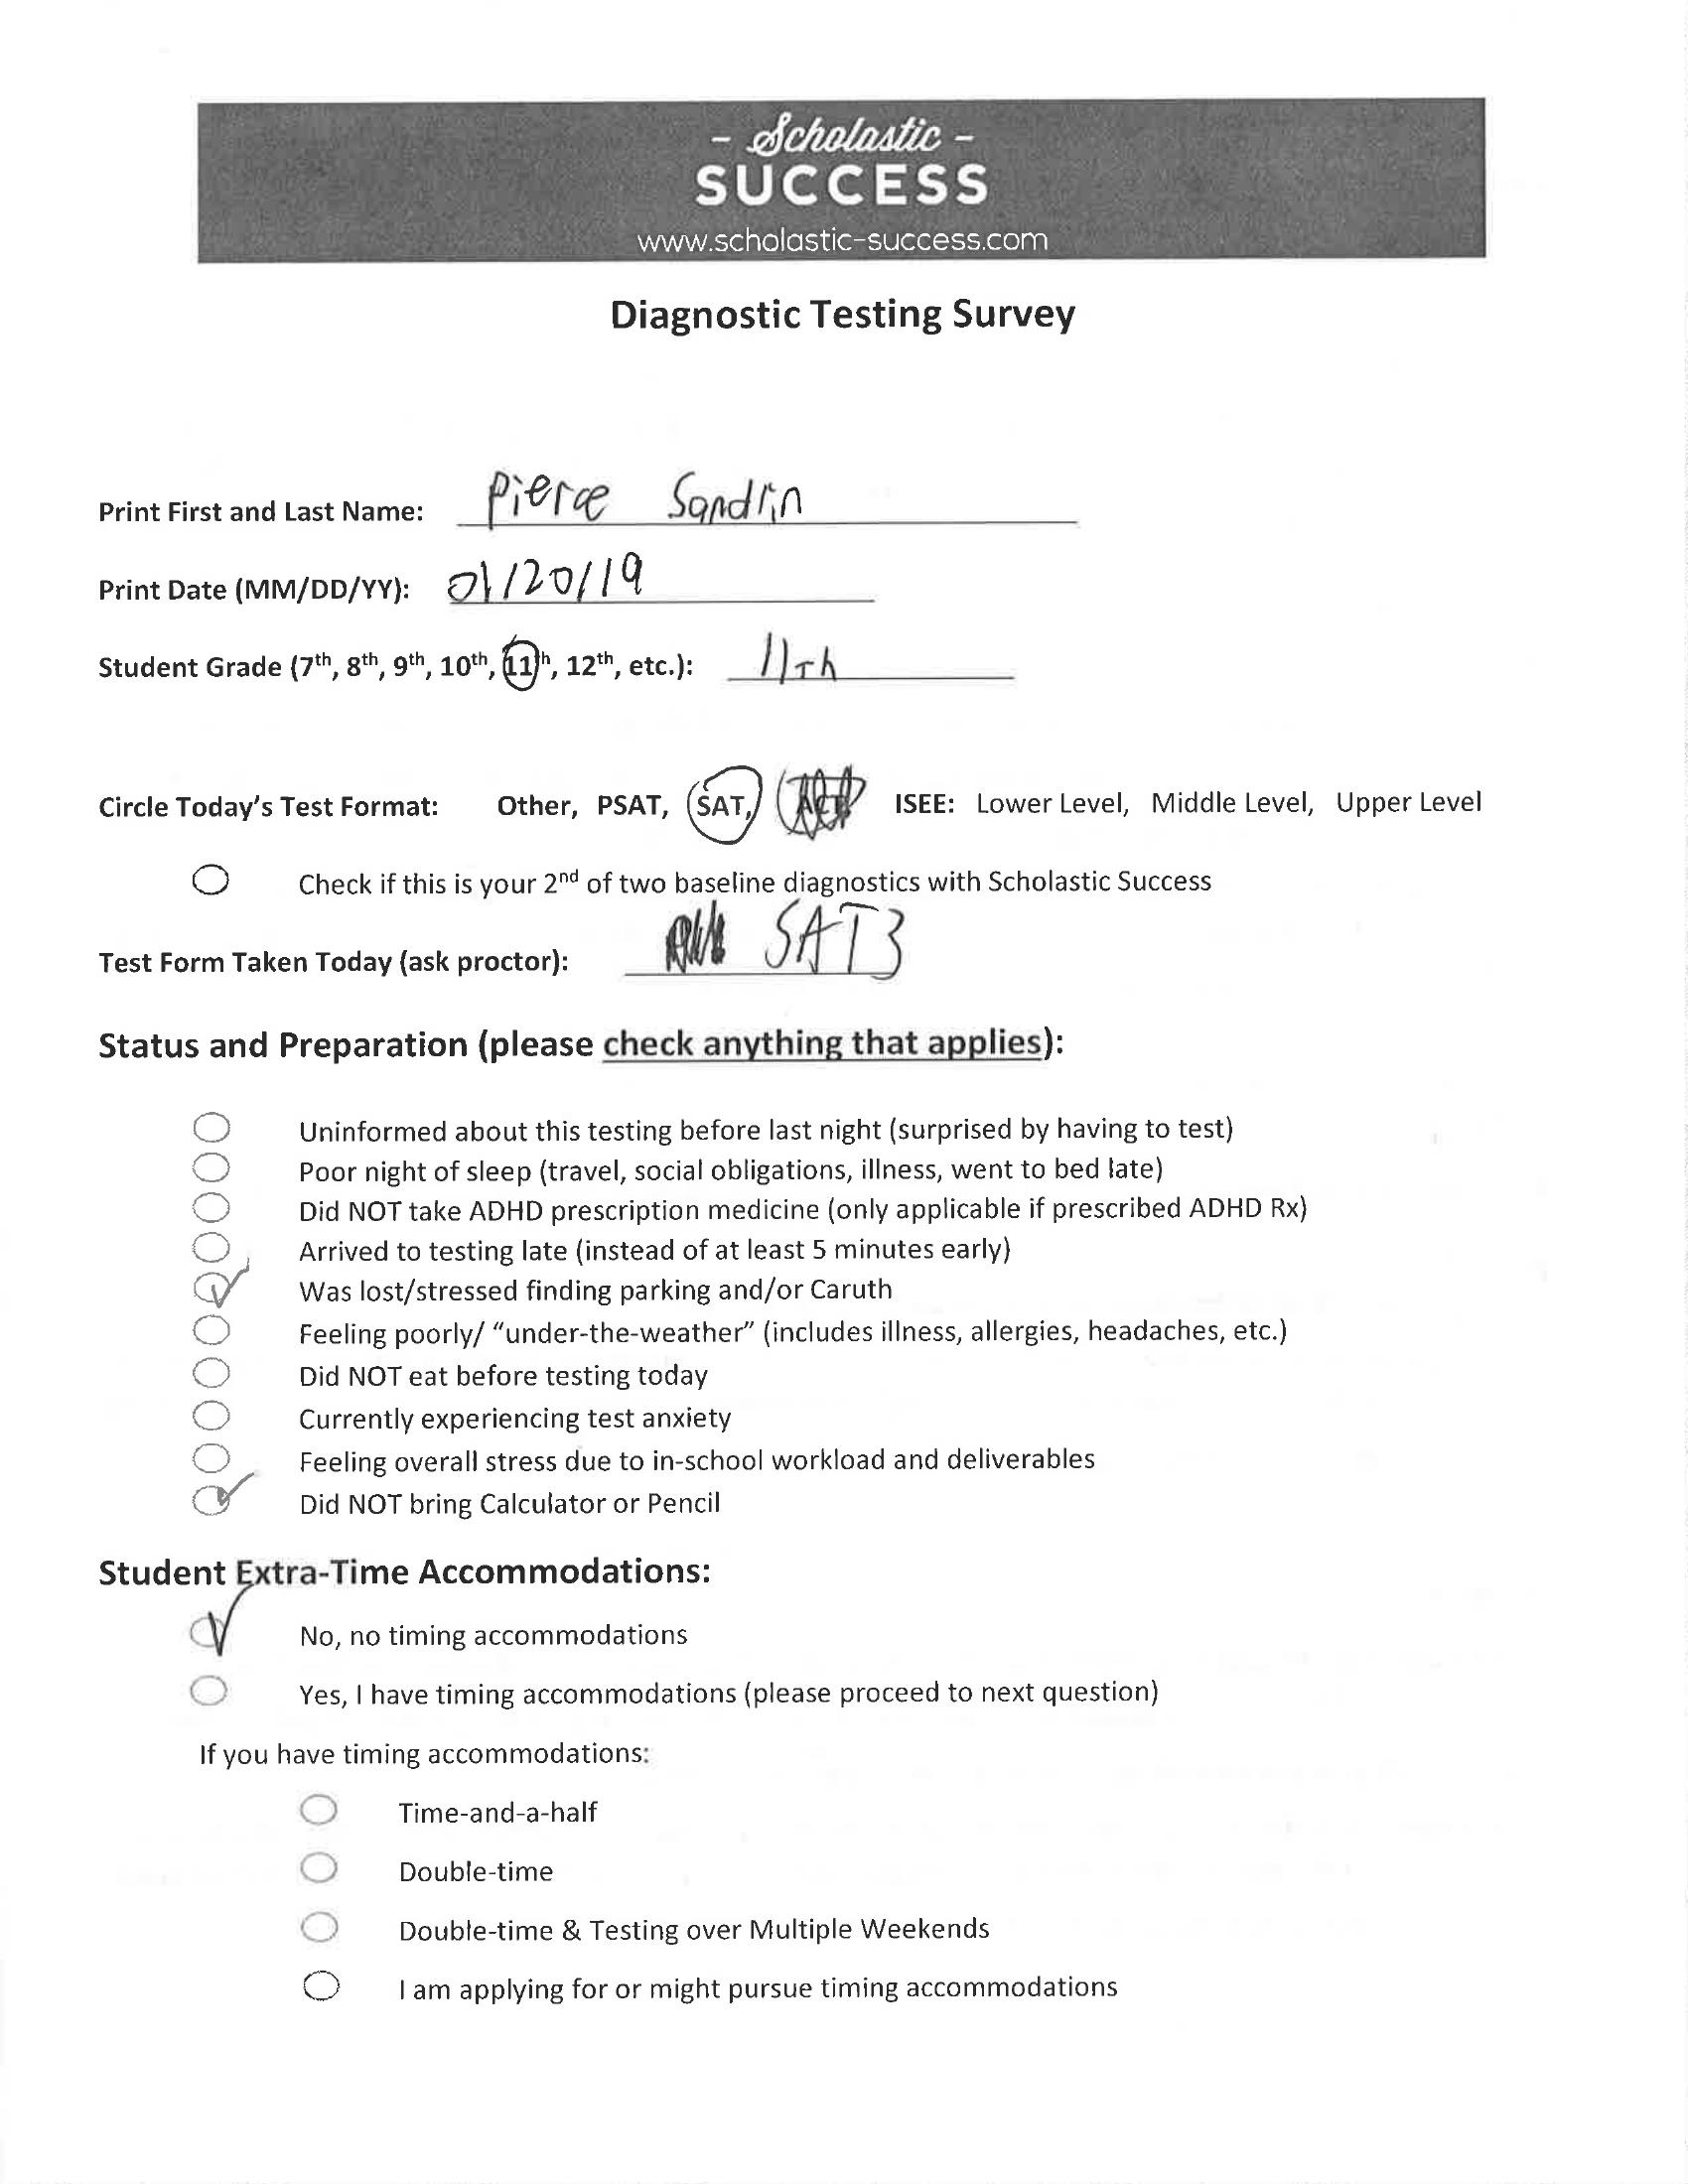 - Scholastic -
SUCCESS
www.scholastic-success.com
Diagnostic Testing Survey
Print First and Last Name: Pierce Sandrin
Print Date (MM/DD/YY): 01/20/19
Student Grade (7th, 8th, 9th, 10th, 11th, 12th, etc.): 11th
Circle Today's Test Format: Other, PSAT, SAT, ACT ISEE: Lower Level, Middle Level, Upper Level
Check if this is your 2nd of two baseline diagnostics with Scholastic Success
Test Form Taken Today (ask proctor): SAT3
Status and Preparation (please check anything that applies):
Uninformed about this testing before last night (surprised by having to test)
Poor night of sleep (travel, social obligations, illness, went to bed late)
Did NOT take ADHD prescription medicine (only applicable if prescribed ADHD Rx)
Arrived to testing late (instead of at least 5 minutes early)
Was lost/stressed finding parking and/or Caruth
Feeling poorly/ "under-the-weather" (includes illness, allergies, headaches, etc.)
Did NOT eat before testing today
Currently experiencing test anxiety
Feeling overall stress due to in-school workload and deliverables
Did NOT bring Calculator or Pencil
Student Extra-Time Accommodations:
No, no timing accommodations
Yes, I have timing accommodations (please proceed to next question)
If you have timing accommodations:
Time-and-a-half
Double-time
Double-time & Testing over Multiple Weekends
I am applying for or might pursue timing accommodations